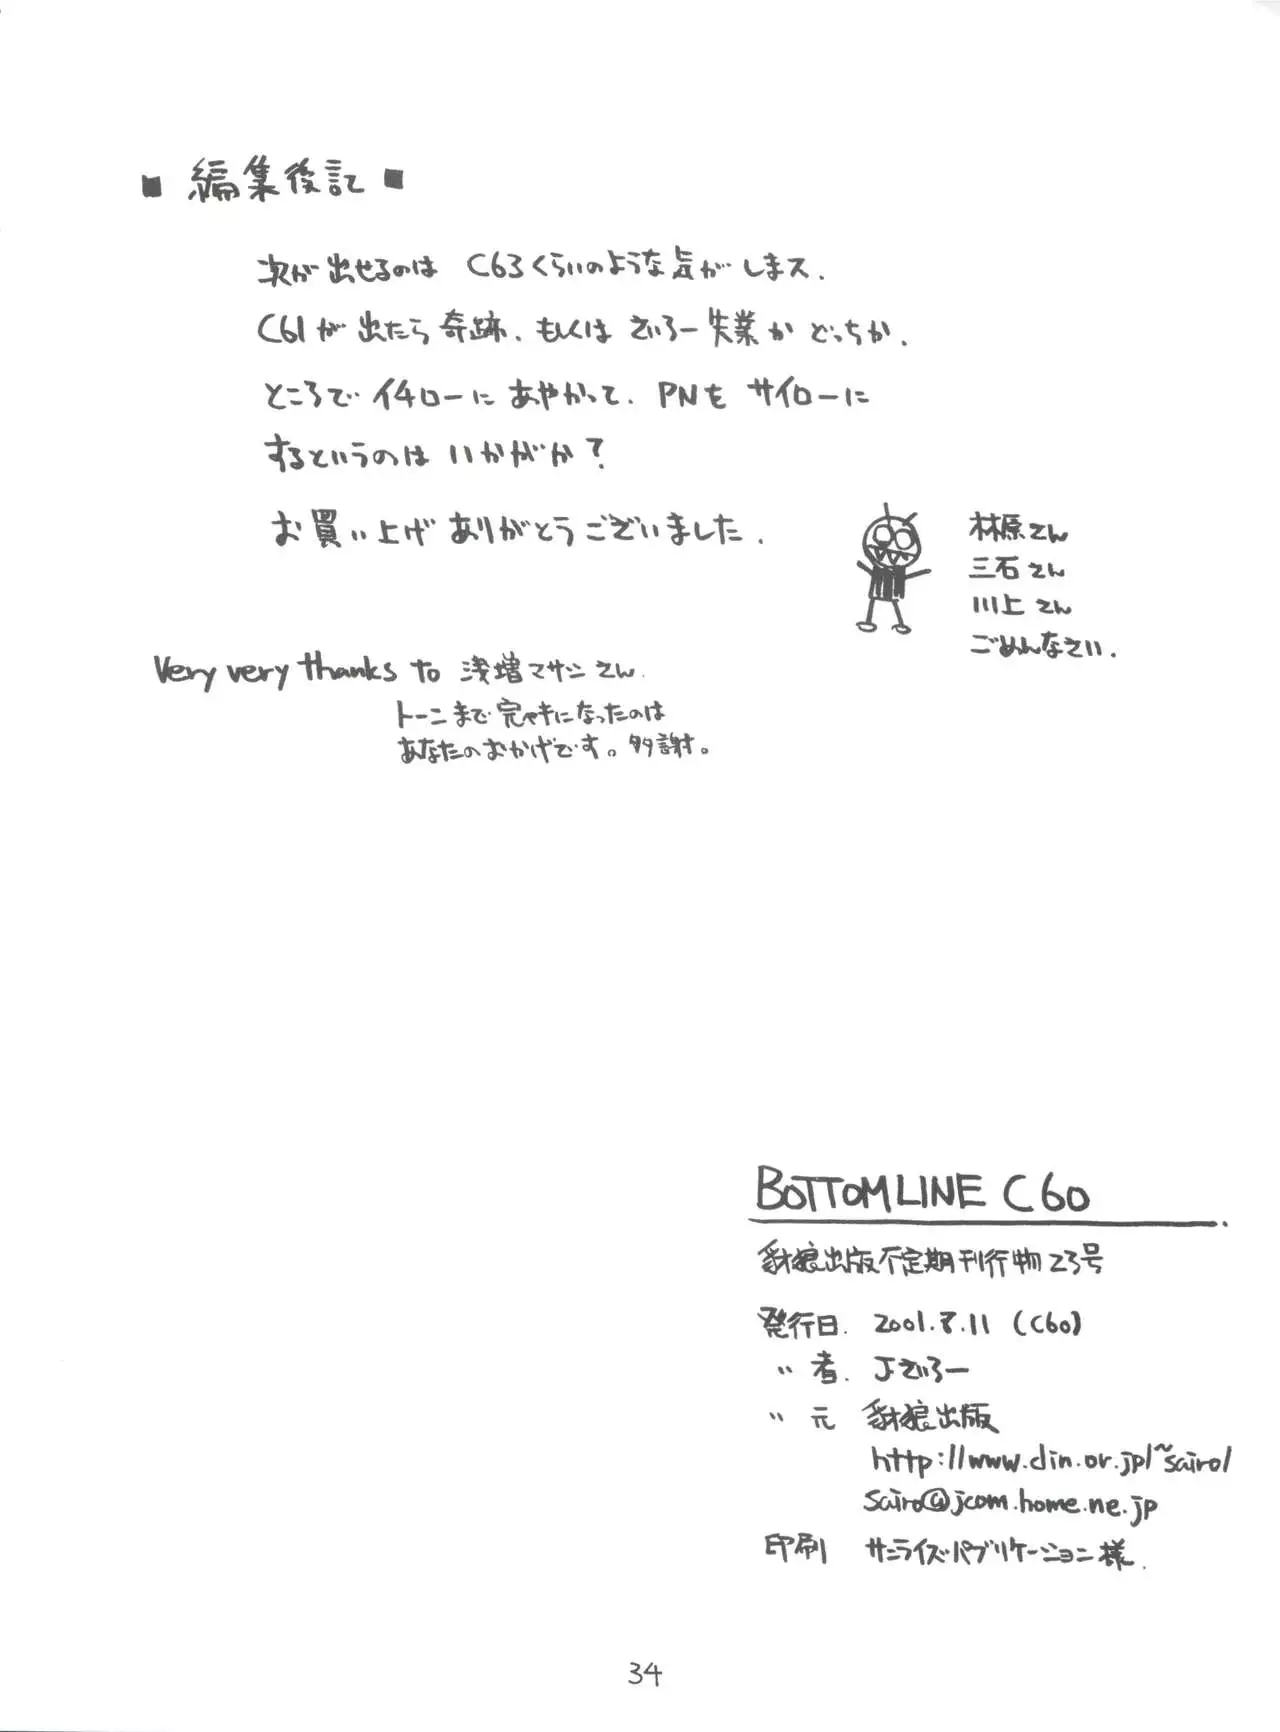 ■ 編集後記 ■
次が出せるのは C63くらいのような気がしまス.
C61が出たら奇跡、もしくは さいろー失業か どっちか.
ところで イチローに あやかって、PNも サイローに
するというのは いかがか?
お買い上げ ありがとうございました.
林原さん
三石さん
川上さん
ごめんなさい.
Very very thanks to 浅増マサシさん.
トーンまで完ペキになったのは
あなたのおかげです。多謝。
BOTTOM LINE C60
豺狼出版不定期刊行物23号
発行日. 2001.8.11 (C60)
〃 者. Jさいろー
〃 元 豺狼出版
http://www.din.or.jp/~sairo/
sairo@jcom.home.ne.jp
印刷 サンライズパブリケーション様.
34